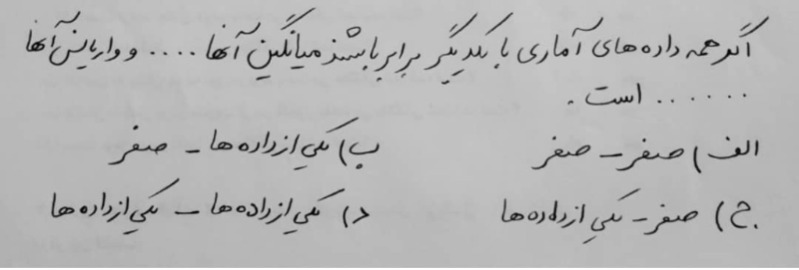 اگر همه داده های آماری با یکدیگر برابر باشند میانگین آنها .... و واریانس آنها
...... است .
الف) صفر - صفر ب) یکی از داده ها - صفر
ج) صفر - یکی از داده ها د) یکی از داده ها - یکی از داده ها